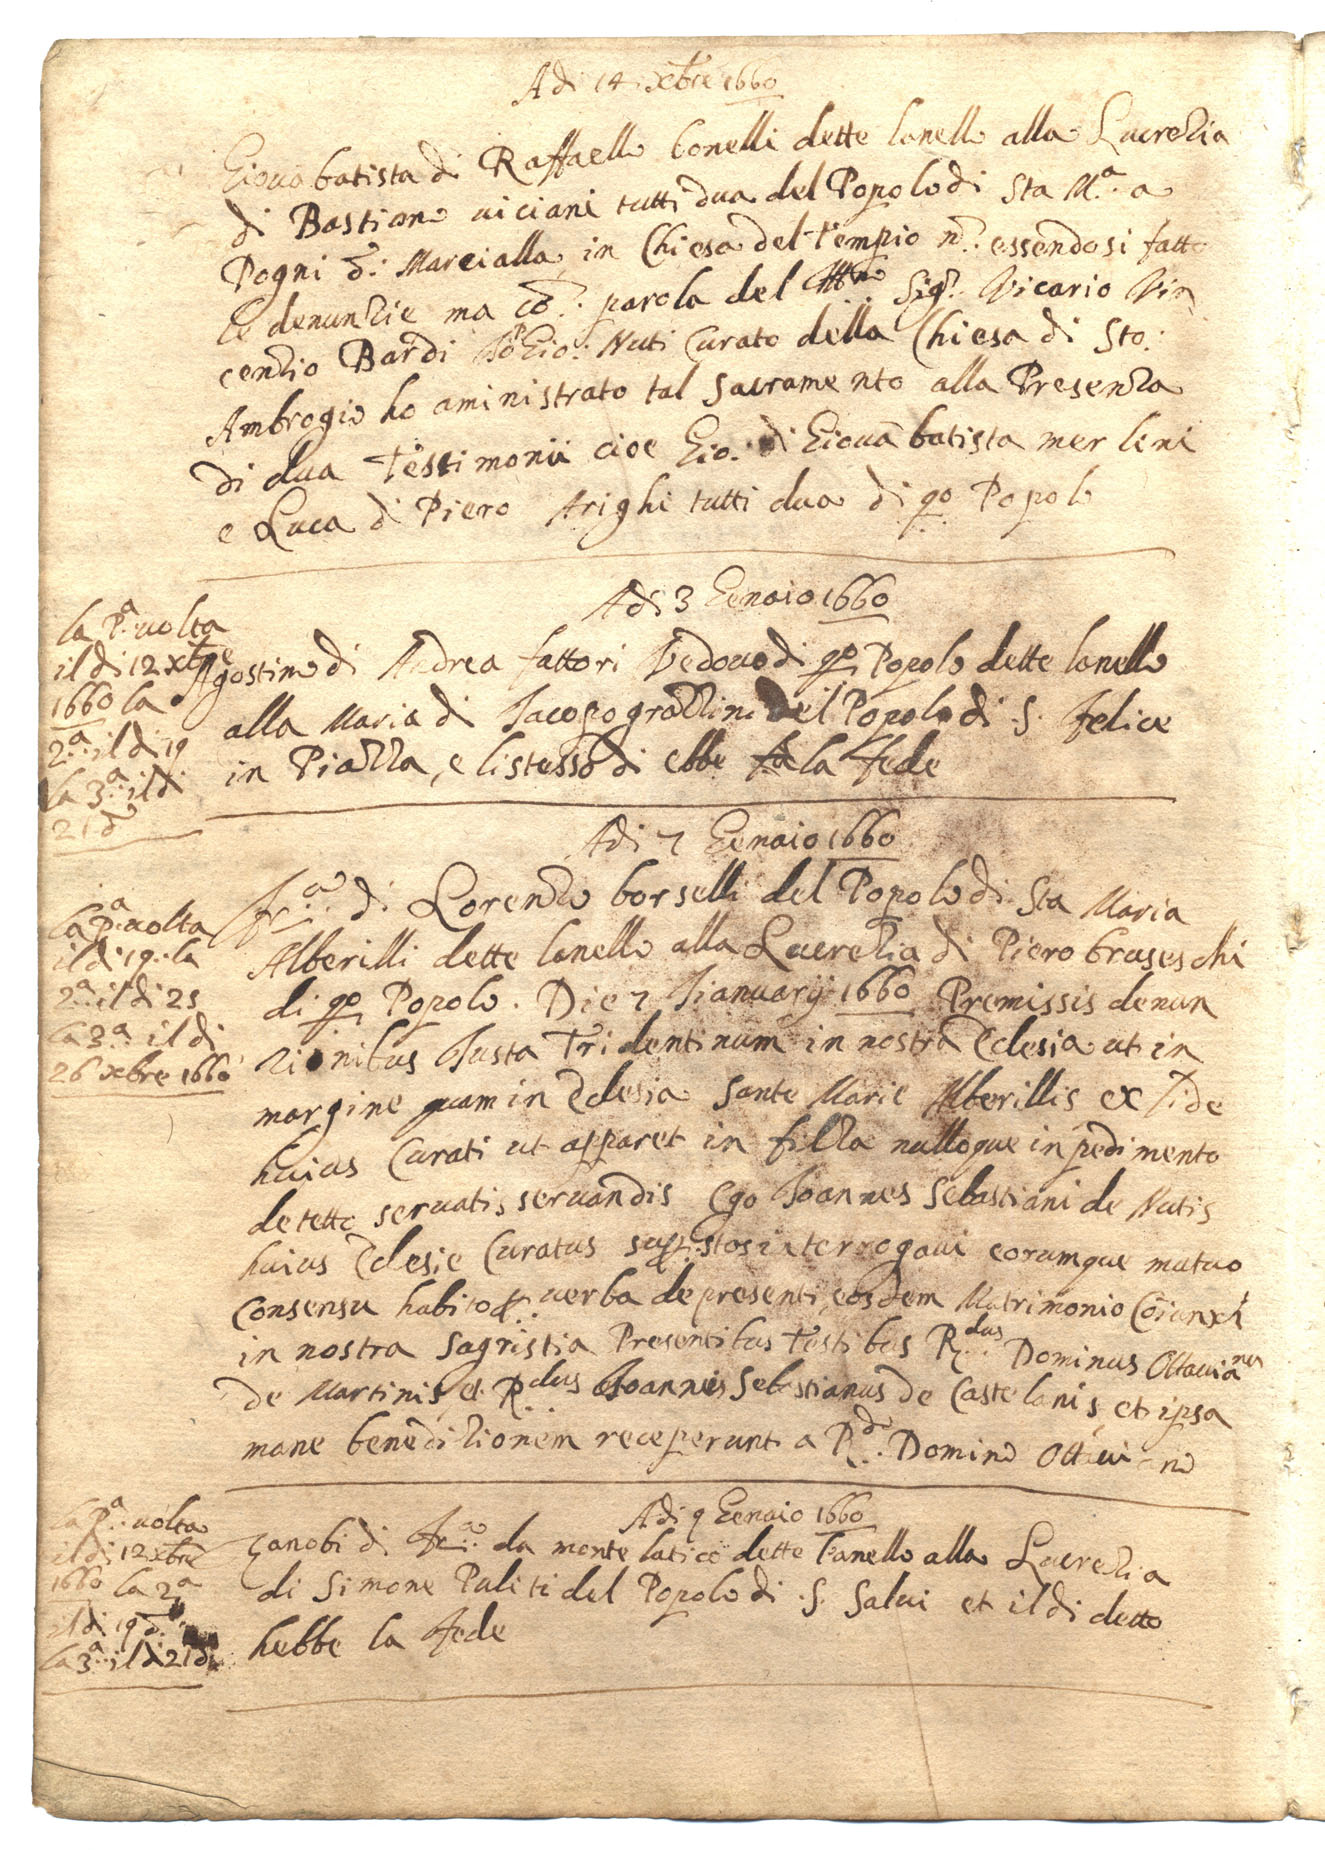 Adi 14 xbre 1660
Giovabatista di Raffaello bonelli dette lanello alla Lucretia
di Bastiano viciani tutti dua del Popolo di Sta Ma. a
Pogni d. Marcialla, in Chiesa del tempio n. essendosi fatto
le denuntie ma co. parola del Sigr. Vicario Vin
centio Bardi Io P Gio: Nuti Curato della Chiesa di Sto.
Ambrogio ho aministrato tal sacramento alla Presentia
di dua Testimonii cioe Gio. di Giovabatista merleni
e Luca di Piero Arighi tutti dua di qo Popolo
Adi 3 Genaio 1660
la Pa. uolta
il di 12 xbre
1660 la
2a. il di 19
la 3a. il di
21 d
Agostino di Andrea fattori Vedovo di qo Popolo dette lanello
alla Maria di Iacopo grazzini del Popolo di S. felice
in Piazza, e listesso di ebbe la fede
Adi 7 Genaio 1660
la pa. uolta
il di 19. la
2a. il di 25
la 3a. il di
26 xbre 1660
Frco. di Lorenzo borselli del Popolo di Sta Maria
Alberilli dette lanello alla Lucretia di Piero bruseschi
di qo Popolo. Die 7 Iianuarij 1660 Premissis denun
tionibus Iusta Tridentinum in nostra Eclesia ut in
margine quam in Eclesia Sante Marie Alberillis ex fide
huius Curati ut apparet in filza nulloque inpedimento
detetto servatis servandis Ego Ioannes Sebastiani de Nutis
huius Eclesie Curatus interrogaui eorumque mutuo
Consensu habito p. uerba de presenti eosdem Matrimonio Coiunxi
in nostra Sagristia Presentibus Testibus R.dus Dominus Ottauianus
de Martinis et R.dus Ioannes Sebastianus de Castelanis et ipsa
mane beneditionem receperunt a R.do Domino Ottaviano
Adi 9 Genaio 1660
la pa. uolta
il di 12 xbre
1660 la 2a
il di 19 d.
la 3a. il di 21 d
Zanobi di Frco. da monte laticò dette lanello alla Lucretia
di Simone Puliti del Popolo di S. Salui et il di detto
hebbe la fede